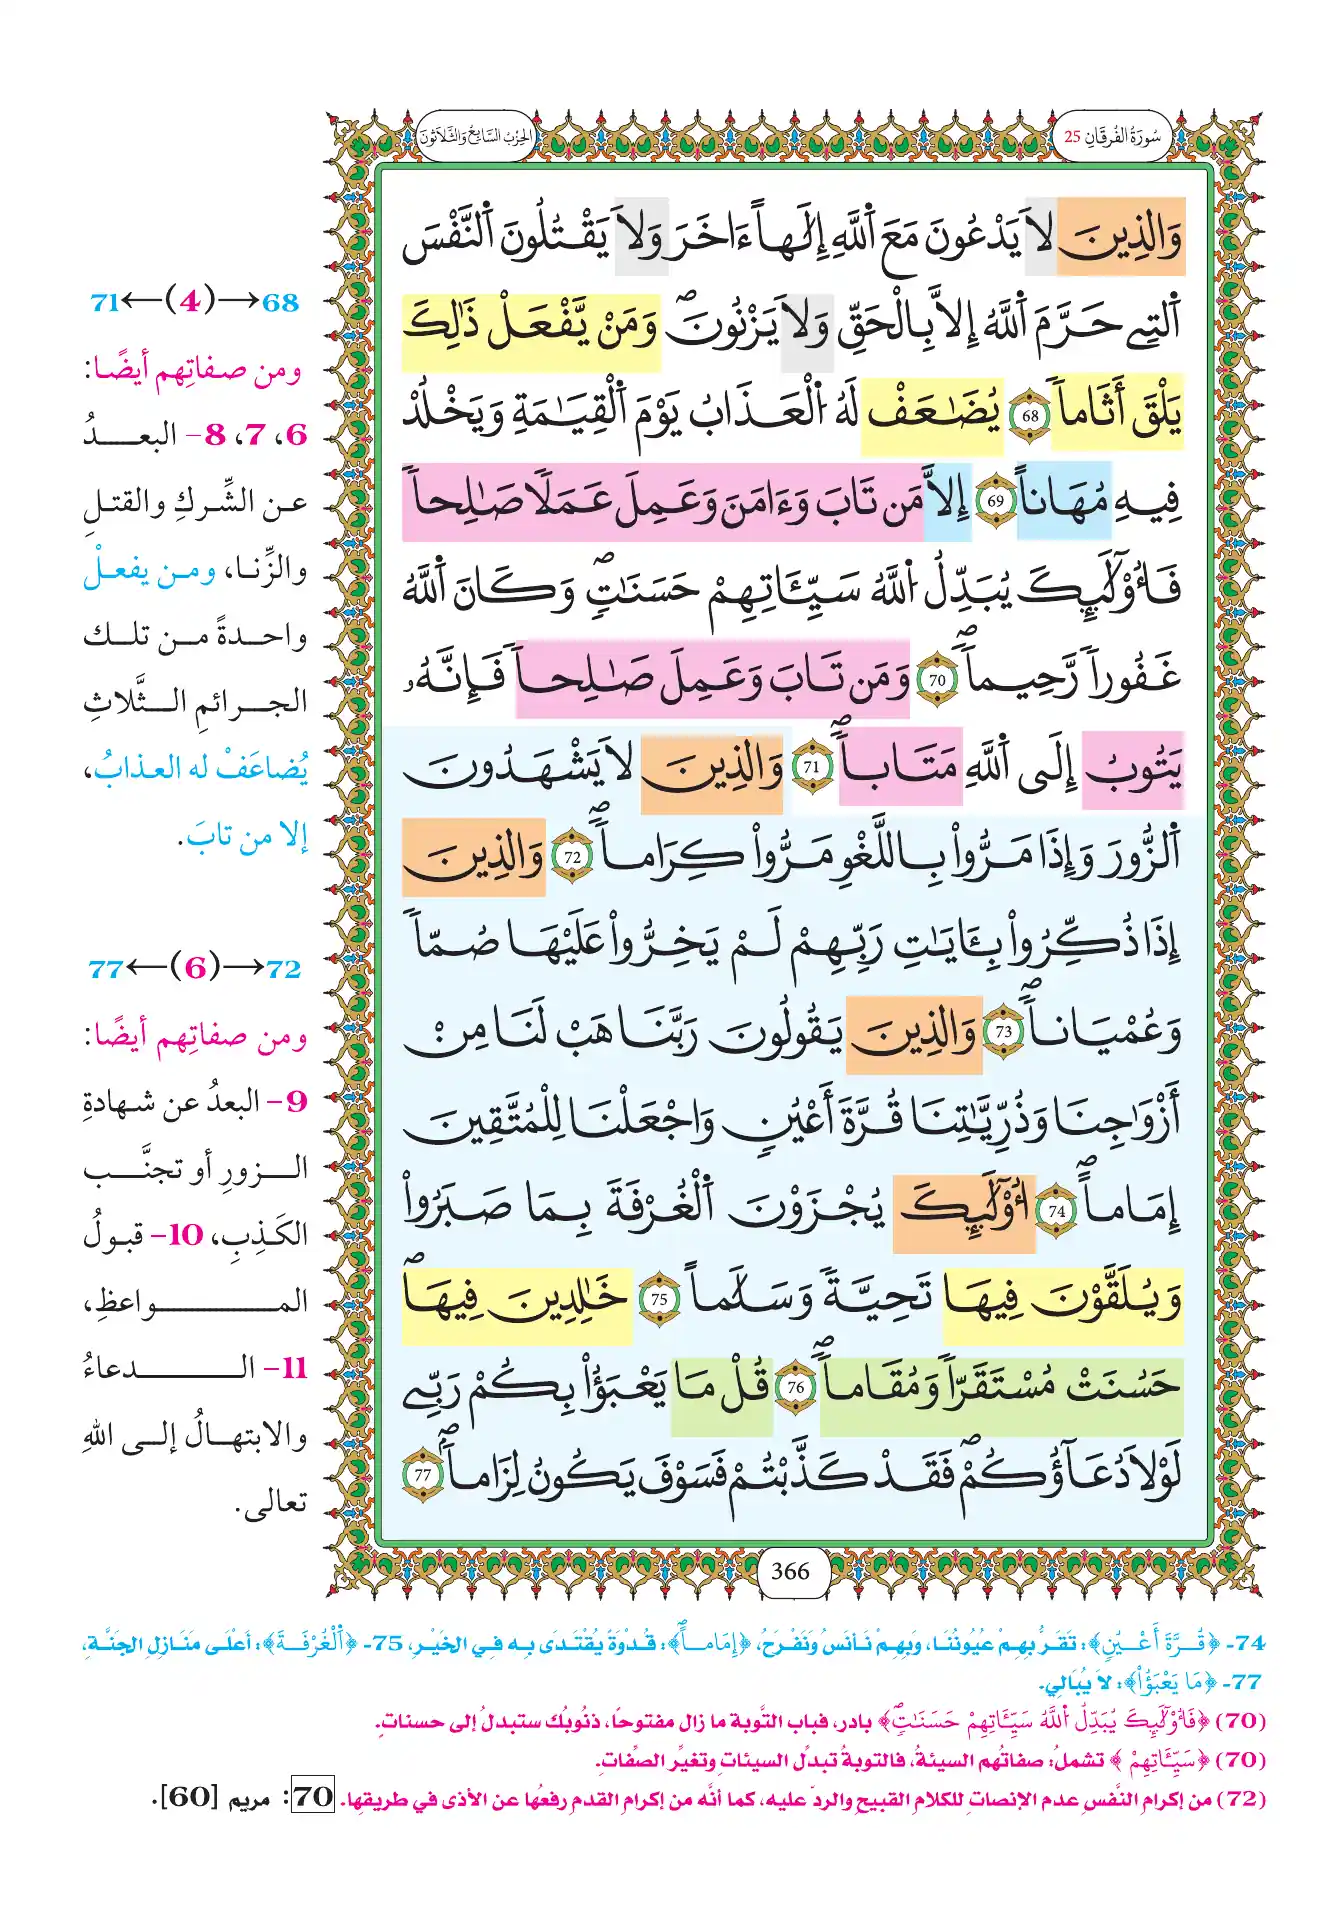 سُورَةُ الفُرقَانِ 25
الحِزْبُ السَّابِعُ وَالثَّلَاثُونَ
وَالذِينَ لَا يَدْعُونَ مَعَ اَللَّهِ إِلَٰهاً ءَاخَرَ وَلَا يَقْتُلُونَ اَلنَّفْسَ
اَلتِے حَرَّمَ اَللَّهُ إِلَّا بِالْحَقِّ وَلَا يَزْنُونَۖ وَمَنْ يَّفْعَلْ ذَٰلِكَ
يَلْقَ أَثَاماً 68 يُضَٰعَفْ لَهُ اُلْعَذَابُ يَوْمَ اَلْقِيَٰمَةِ وَيَخْلُدْ
فِيهِ مُهَاناً 69 إِلَّا مَن تَابَ وَءَامَنَ وَعَمِلَ عَمَلًا صَٰلِحاً
فَأُوْلَٰٓئِكَ يُبَدِّلُ اُللَّهُ سَيِّـَٔاتِهِمْ حَسَنَٰتٖۖ وَكَانَ اَللَّهُ
غَفُوراً رَّحِيماًۖ 70 وَمَن تَابَ وَعَمِلَ صَٰلِحاً فَإِنَّهُۥ
يَتُوبُ إِلَى اَللَّهِ مَتَاباًۖ 71 وَالذِينَ لَا يَشْهَدُونَ
اَلزُّورَ وَإِذَا مَرُّواْ بِاللَّغْوِ مَرُّواْ كِرَاماًۖ 72 وَالذِينَ
إِذَا ذُكِّرُواْ بِـَٔايَٰتِ رَبِّهِمْ لَمْ يَخِرُّواْ عَلَيْهَا صُمّاً
وَعُمْيَاناًۖ 73 وَالذِينَ يَقُولُونَ رَبَّنَا هَبْ لَنَا مِنْ
أَزْوَٰجِنَا وَذُرِّيَّٰتِنَا قُرَّةَ أَعْيُنٖ وَاجْعَلْنَا لِلْمُتَّقِينَ
إِمَاماًۖ 74 أُوْلَٰٓئِكَ يُجْزَوْنَ اَلْغُرْفَةَ بِمَا صَبَرُواْ
وَيُلَقَّوْنَ فِيهَا تَحِيَّةً وَسَلَٰماً 75 خَٰلِدِينَ فِيهَاۖ
حَسُنَتْ مُسْتَقَرّاً وَمُقَاماًۖ 76 قُلْ مَا يَعْبَؤُاْ بِكُمْ رَبِّے
لَوْلَا دُعَآؤُكُمْۖ فَقَدْ كَذَّبْتُمْ فَسَوْفَ يَكُونُ لِزَاماًۖ 77
366
68→(4)←71
ومن صفاتِهم أيضًا:
6، 7، 8- البعدُ
عن الشِّركِ والقتلِ
والزِّنا، ومن يفعلْ
واحدةً من تلك
الجرائمِ الثَّلاثِ
يُضاعَفْ له العذابُ،
إلا من تابَ.
72→(6)←77
ومن صفاتِهم أيضًا:
9- البعدُ عن شهادةِ
الزورِ أو تجنَّب
الكَذِبِ، 10- قبولُ
المواعظِ،
11- الدعاءُ
والابتهالُ إلى اللهِ
تعالى.
74- ﴿قُرَّةَ أَعْيُنٖ﴾: تَقَرُّ بِهِمْ عُيُونُنَا، وَبِهِمْ نَأنَسُ وَنَفْرَحُ، ﴿إِمَاماًۖ﴾: قُدْوَةً يُقْتَدَى بِهِ فِي الخَيْرِ، 75- ﴿اَلْغُرْفَةَ﴾: أعْلَى مَنَازِلِ الجَنَّةِ،
77- ﴿مَا يَعْبَؤُاْ﴾: لَا يُبَالِي.
(70) ﴿فَأُوْلَٰٓئِكَ يُبَدِّلُ اُللَّهُ سَيِّـَٔاتِهِمْ حَسَنَٰتٖۖ﴾ بادر، فباب التَّوبة ما زال مفتوحًا، ذنُوبُك ستبدلُ إلى حسناتٍ.
(70) ﴿سَيِّـَٔاتِهِمْ﴾ تشملُ: صفاتُهم السيئةُ، فالتوبةُ تبدلُ السيئاتِ وتغيِّر الصِّفاتِ.
(72) من إكرام النَّفسِ عدم الإنصاتِ للكلامِ القبيحِ والردِّ عليه، كما أنَّه من إكرامِ القدم رفعُها عن الأذى في طريقِها. 70: مريم [60].